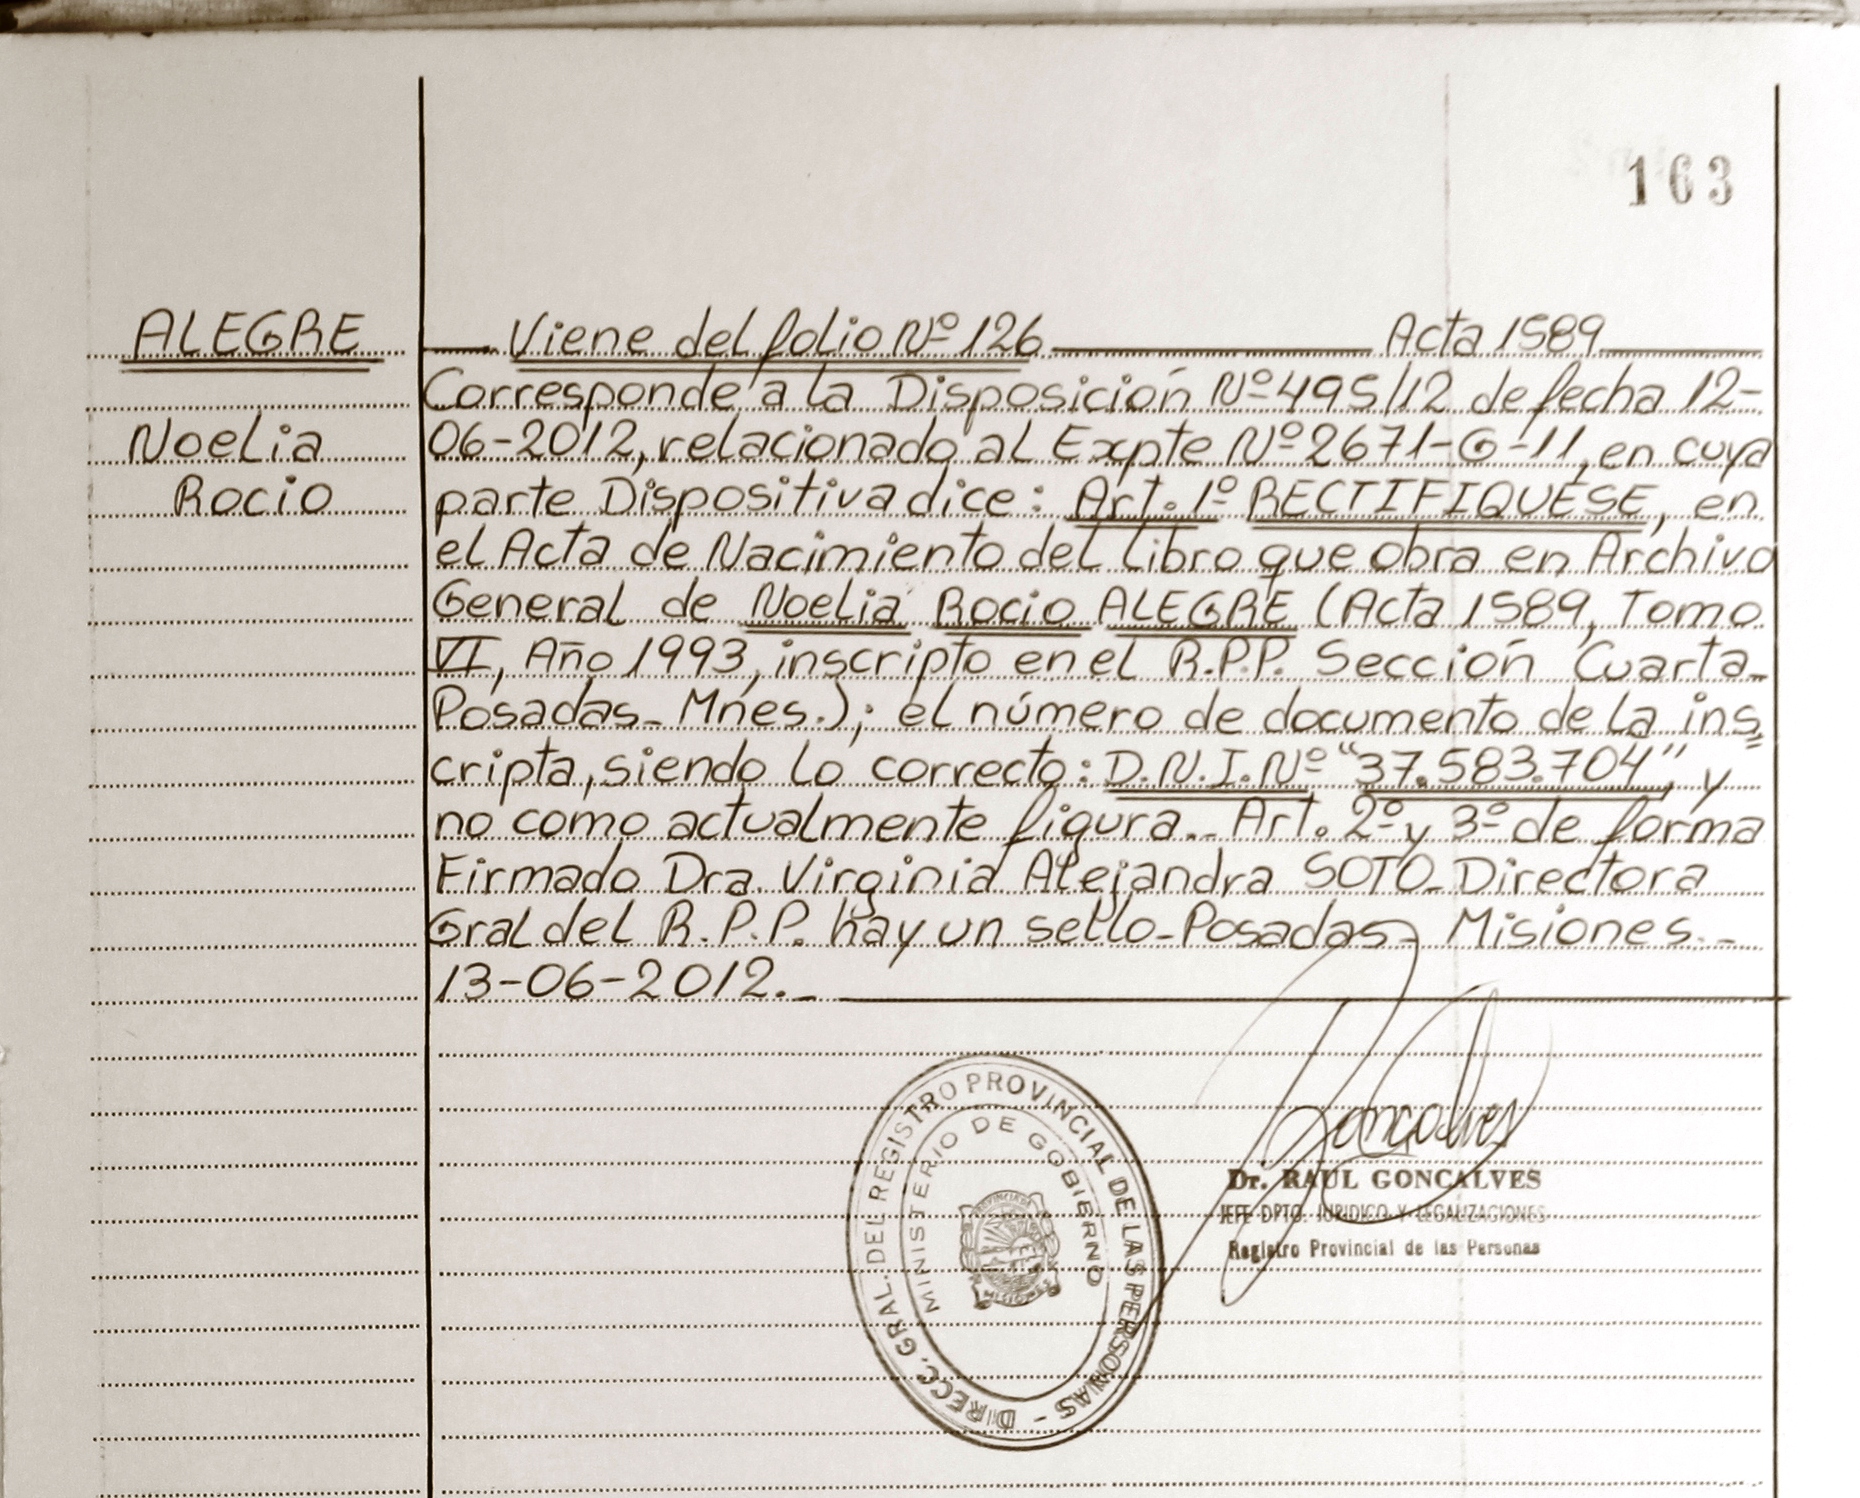 163
ALEGRE
Noelia
Rocio
Viene del folio Nº 126 Acta 1589
Corresponde a la Disposición Nº 495/12 de fecha 12-
06-2012, relacionado al Expte Nº 2671-G-11, en cuya
parte Dispositiva dice: Art. 1º RECTIFIQUÉSE, en
el Acta de Nacimiento del libro que obra en Archivo
General de Noelia Rocio ALEGRE (Acta 1589, Tomo
VI, Año 1993, inscripto en el R.P.P. Sección Cuarta-
Posadas- Mnes.); el número de documento de la ins
cripta, siendo lo correcto: D.N.I. Nº "37.583.704", y
no como actualmente figura.- Art. 2º y 3º de forma
Firmado Dra. Virginia Alejandra SOTO- Directora
Gral del R.P.P. hay un sello-Posadas- Misiones.-
13-06-2012.-
DIRECC. GRAL. DEL REGISTRO PROVINCIAL DE LAS PERSONAS -
MINISTERIO DE GOBIERNO
MISIONES
Goncalves
Dr. RAUL GONCALVES
JEFE DPTO. JURIDICO Y LEGALIZACIONES
Registro Provincial de las Personas